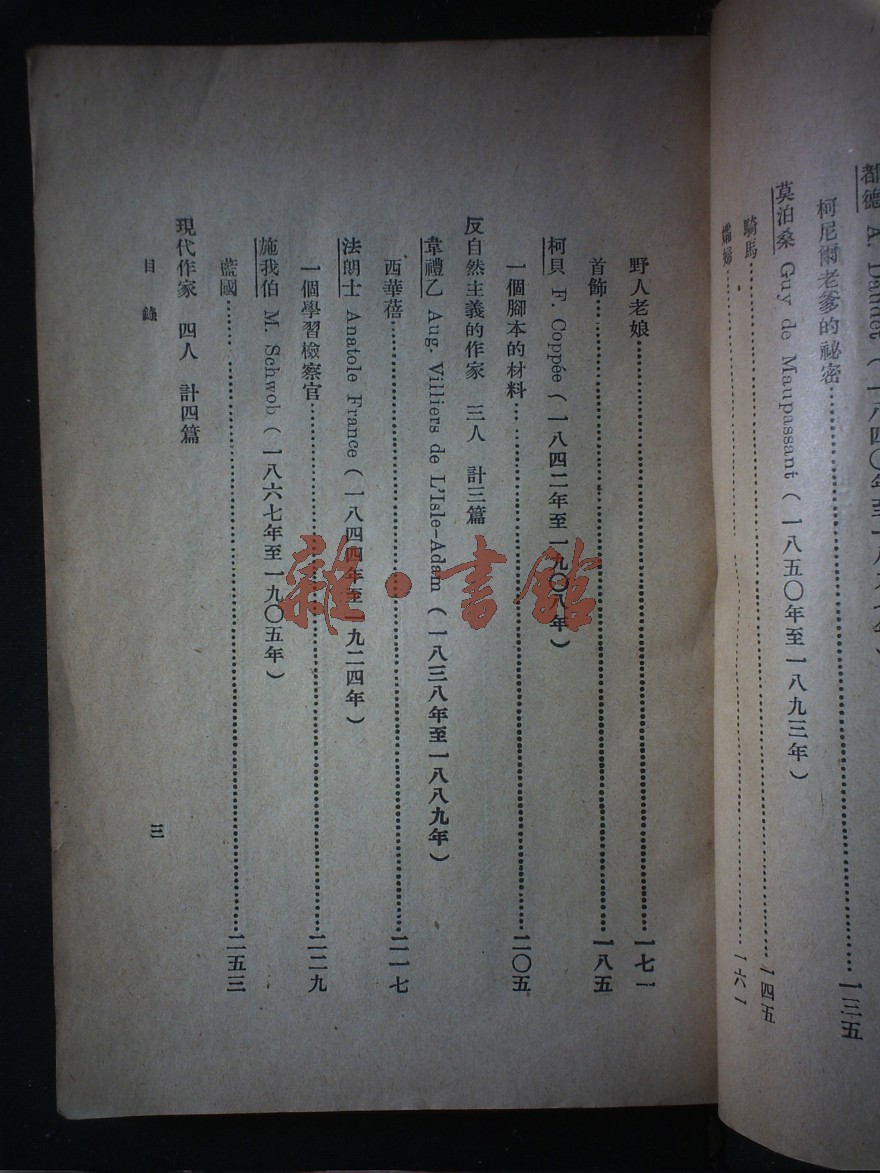 都德 A. Daudet (一八四〇年至一八九七年)
柯尼爾老爹的祕密……一三五
莫泊桑 Guy de Maupassant (一八五〇年至一八九三年)
騎馬……一四五
孀婦……一六一
野人老娘……一七一
首飾……一八五
柯貝 F. Coppée (一八四二年至一九〇八年)
一個腳本的材料……二〇五
反自然主義的作家 三人 計三篇
韋禮乙 Aug. Villiers de L'Isle-Adam (一八三八年至一八八九年)
西華蓓……二一七
法朗士 Anatole France (一八四四年至一九二四年)
一個學習檢察官……二二九
施我伯 M. Schwob (一八六七年至一九〇五年)
藍國……二五三
現代作家 四人 計四篇
目錄
三
雜·書館